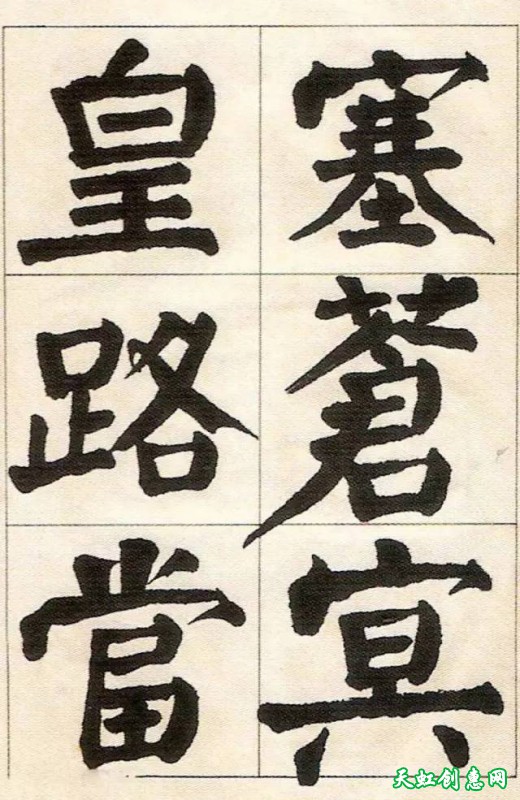 塞蒼冥
皇路當
天虹创惠网